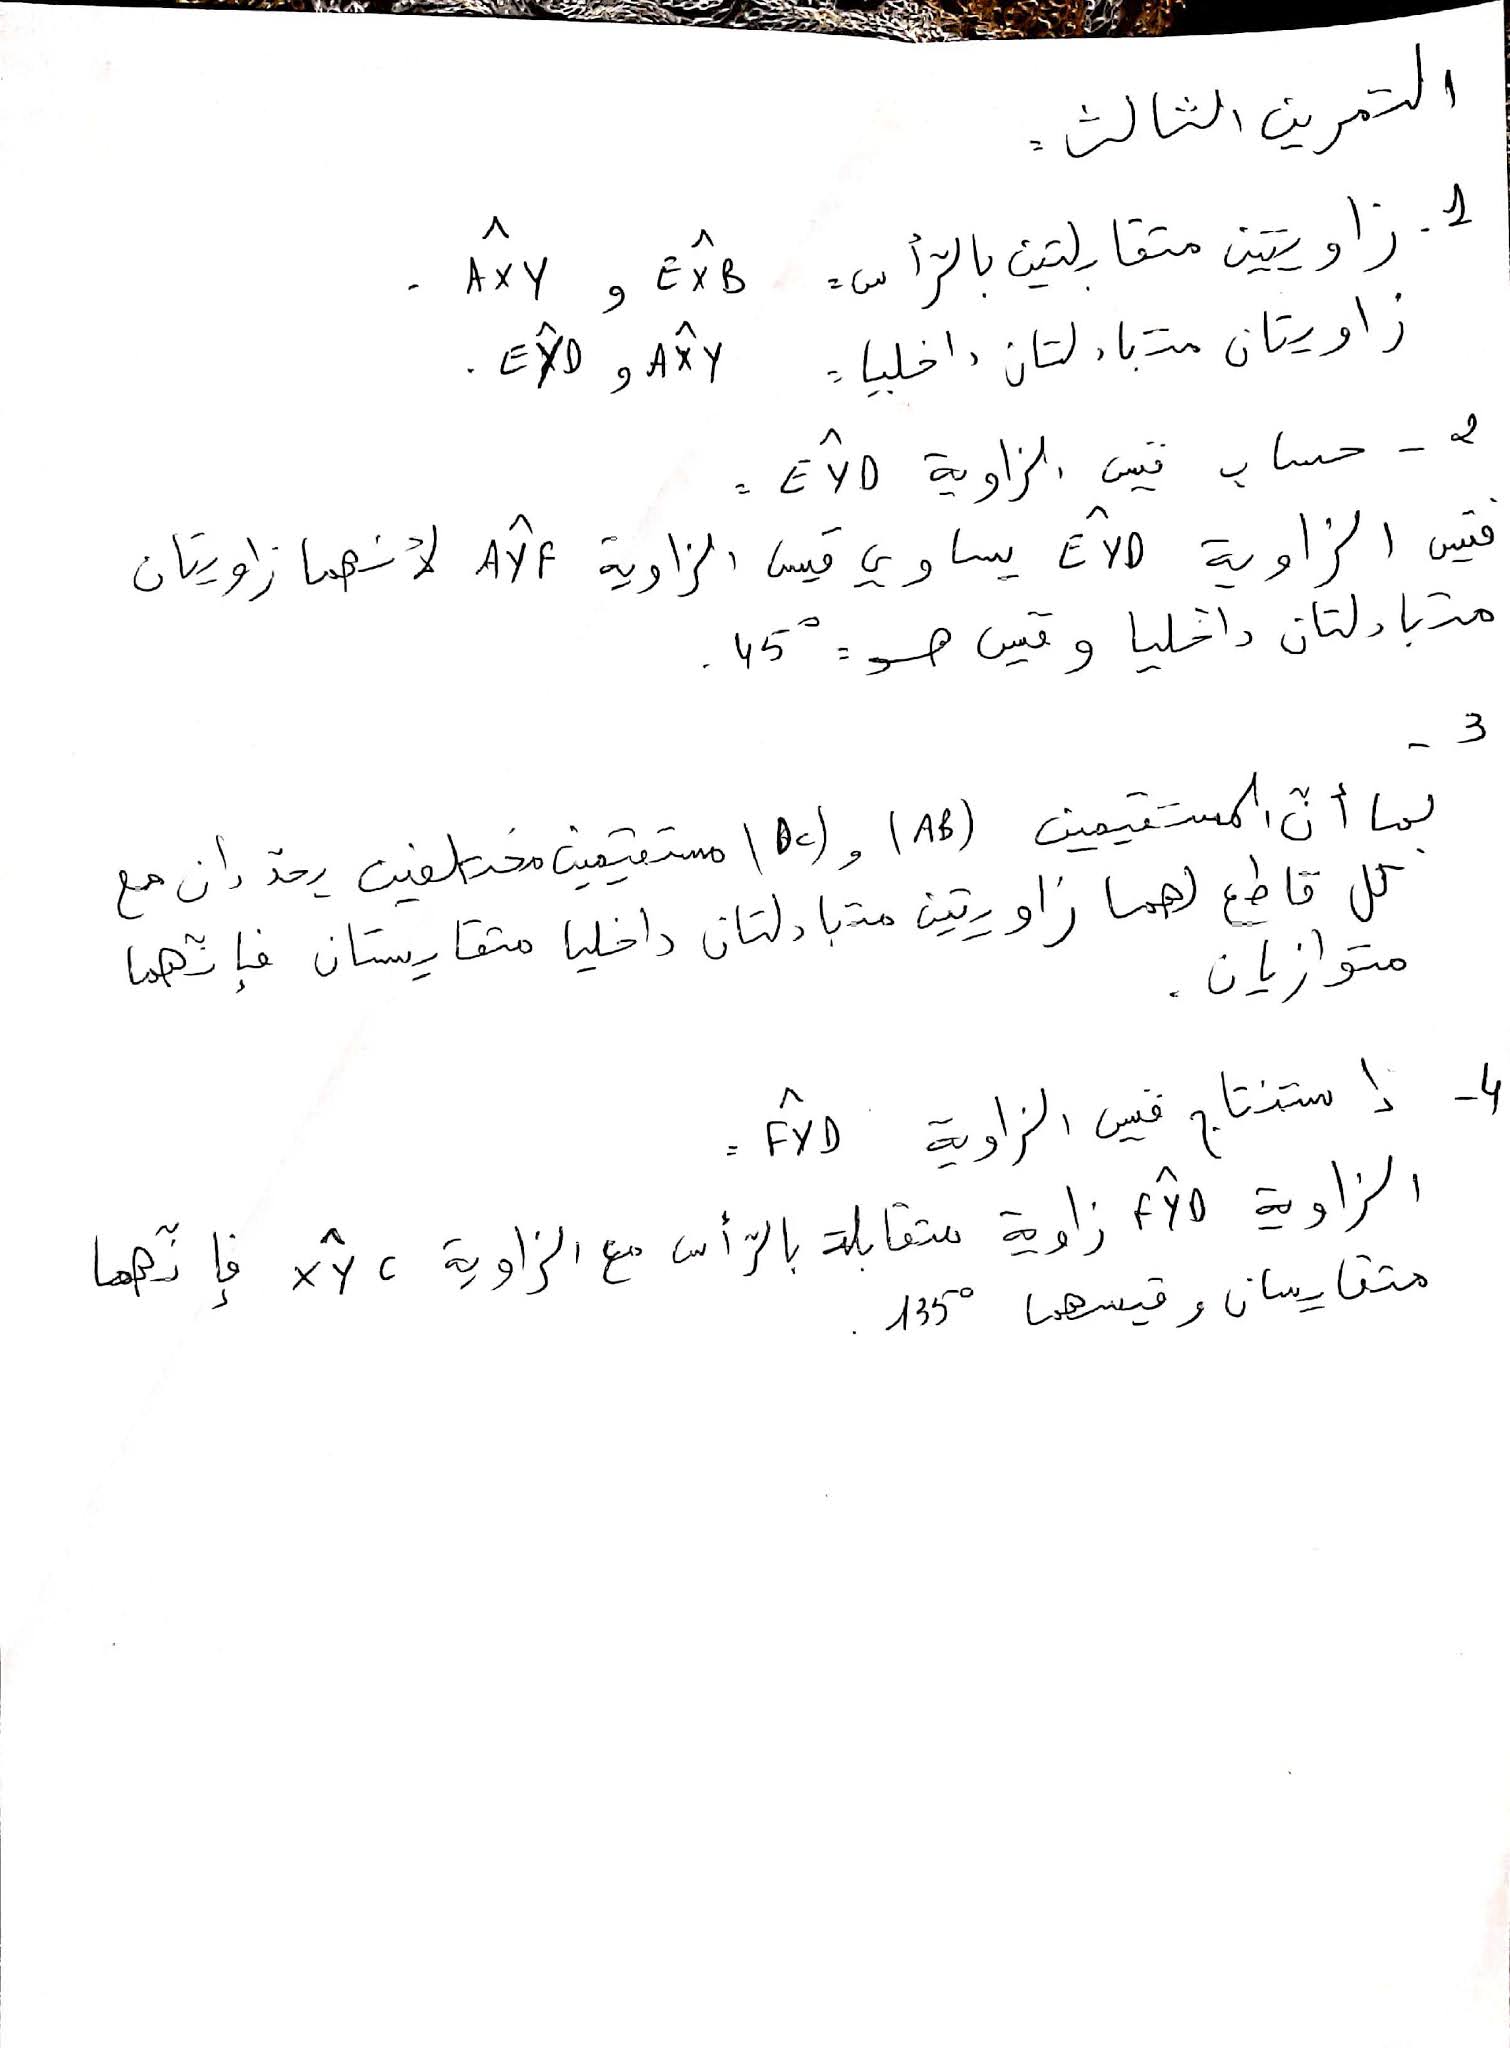 التمرين الثالث =
1. زاويتين متقابلتين بالرّأس = EX̂B و AX̂Y .
زاويتان متبادلتان داخليا = AX̂Y و EŶD .
2 - حساب قيس الزاوية EŶD =
فقيس الزاوية EŶD يساوي قيس الزاوية AŶF لأنهما زاويتان
متبادلتان داخليا وقيس هو = 45° .
3 -
بما أنّ المستقيمين (AB) و (DC) مستقيمين مختلفين يحدّدان مع
كل قاطع لهما زاويتين متبادلتان داخليا متقايستان فإنّهما
متوازيان .
4 - إستنتاج قيس الزاوية FŶD =
الزاوية FŶD زاوية متقابلة بالرّأس مع الزاوية XŶC فإنّهما
متقايسان وقيسهما 135° .